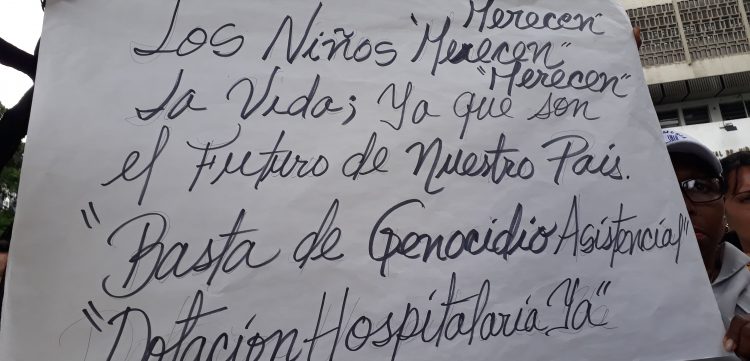 Merecen
Los Niños "Merecen"
"Merecen"
La Vida; Ya que son
el Futuro de Nuestro País.
"Basta de Genocidio Asistencial"
"Dotación Hospitalaria Ya"